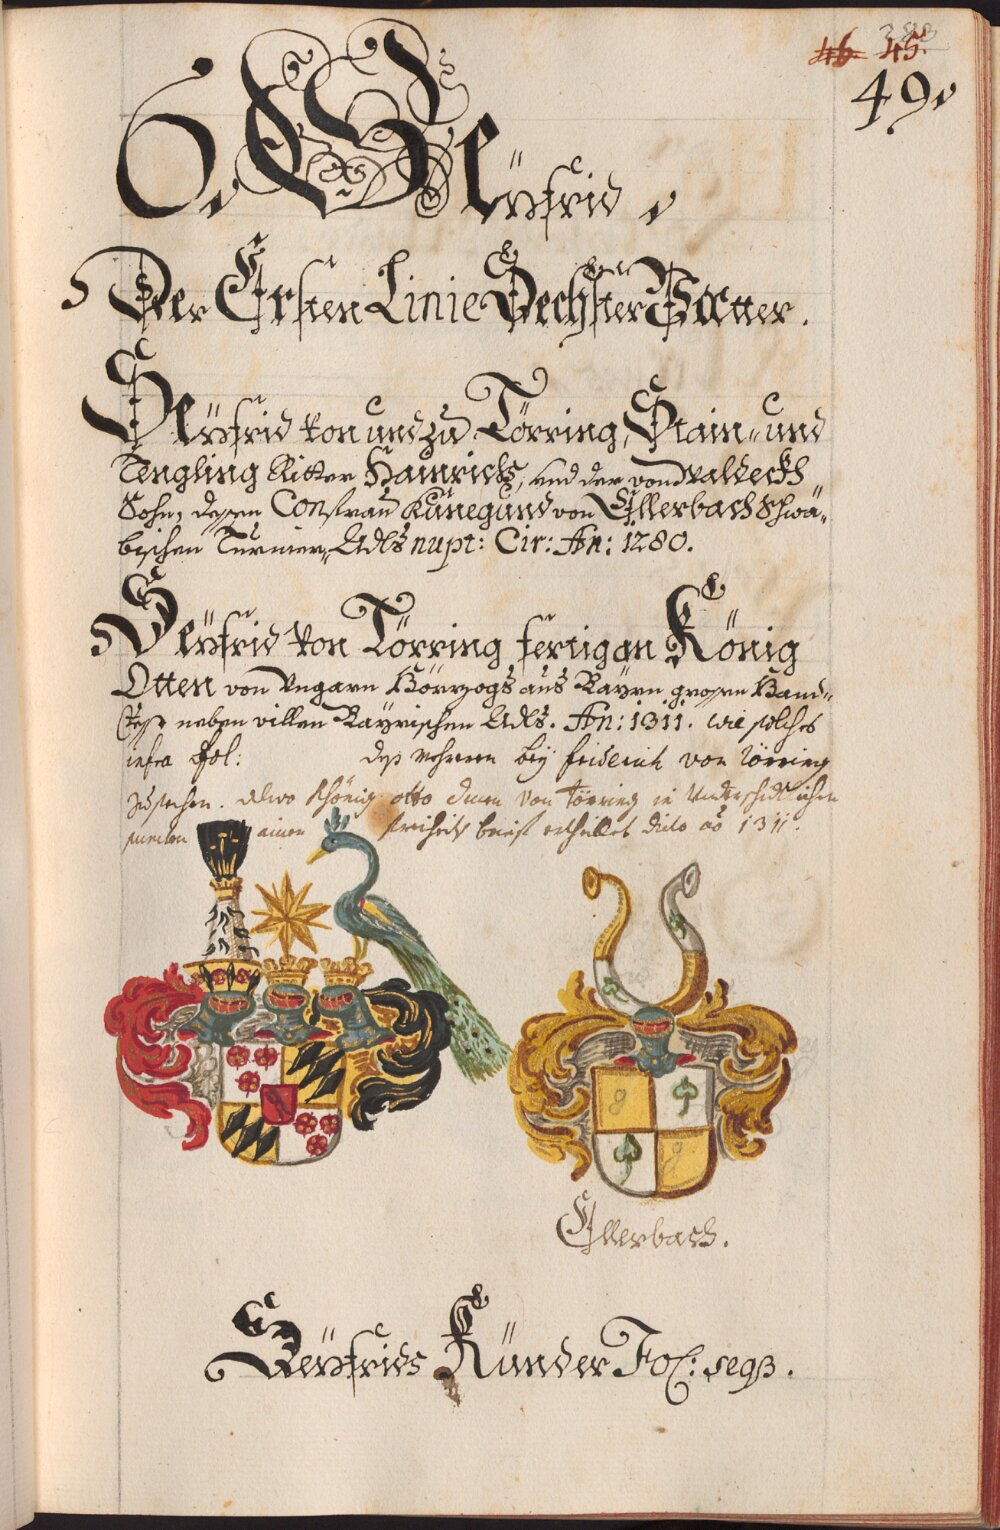 383
46. 45.
49.
6. Seÿfrid.
Der Ersten Linie Sechster Vatter.
Seÿfrid von und zu Törring, Stain- und
Tengling Ritter Hainrichs, und der von Waldeckh
Sohn, dessen Consfrau Künegund von Ellerbach Schwä-
bischen Turnier-Adls nupt: Cir: An: 1280.
Seÿfrid von Törring fertigan König
Otten von Ungarn Hörzogs aus Bayrn grossen Hand-
neben villen Bayrischen Adls. An: 1311. wie solches
infra Fol: des mehrern beÿ friderich von Törring
zu sechen. alwo Khönig otto denen von Törring in Underschidlichen
puncten ainen freiheits brief ertheillet dicto ao 1311.
Ellerbach.
Seÿfrids Künder Fol: seqß.